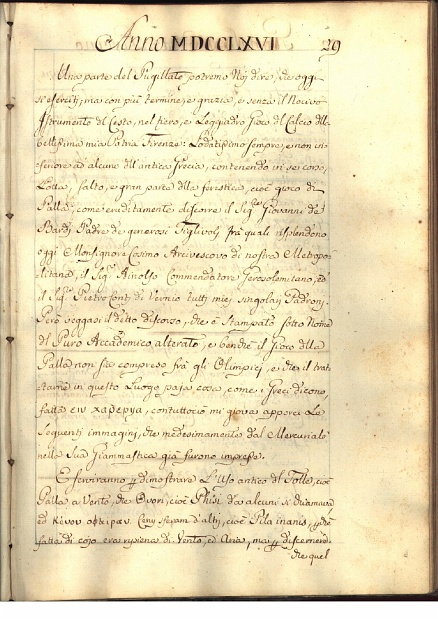 Anno MDCCLXVI 29
Una parte del Pugillato potremo Noi dire, che oggi
si eserciti, ma con più termine, e grazia, e senza il Nocivo
Strumento del Cesto, nel fiero, e Leggiadro Gioco del Calcio dlla
bellissima mia Patria Firenze: Lodatissimo sempre, e non in-
feriore ad alcuno dll'antica Grecia, contenendo in se corso,
Lotta, salto, e gran parte dlla sferistica, cioè gioco di
Palla, come eruditamente discorre il Sigr. Giovanni de
Bardi Padre de generosi Figlivoli frà quali risplendono
oggi Monsignore Cosimo Arcivescovo di nostra Metropo-
litana, il Sigr. Ainolfo Commendatore Gerosolomitano, ed
il Sigr. Pietro Conte di Vernio tutti miei singolari Padroni.
Però veggasi il detto discorso, che è stampato sotto Nome
del Puro Accademico alterato, e benche il Gioco dlla
Palla non sia compreso frà gli Olimpici, e che il trat-
tarne in questo Luogo paja cosa, come i Greci dicono,
fatta, contuttociò mi giova apporci Le
seguenti immagini, che medesimamente dal Mercuriale
nella Sua Giammastica già furono impresse.
E serviranno p dimostrare L'Uso antico del Folle, cioè
Palla a Vento, che Ovori, cioè Phisi da alcuni si chiamava
ed d'altri, cioè Pila inanis, p che
fatta di cojo era ripiena di Vento, ed Aria, ma p discernere
che quel